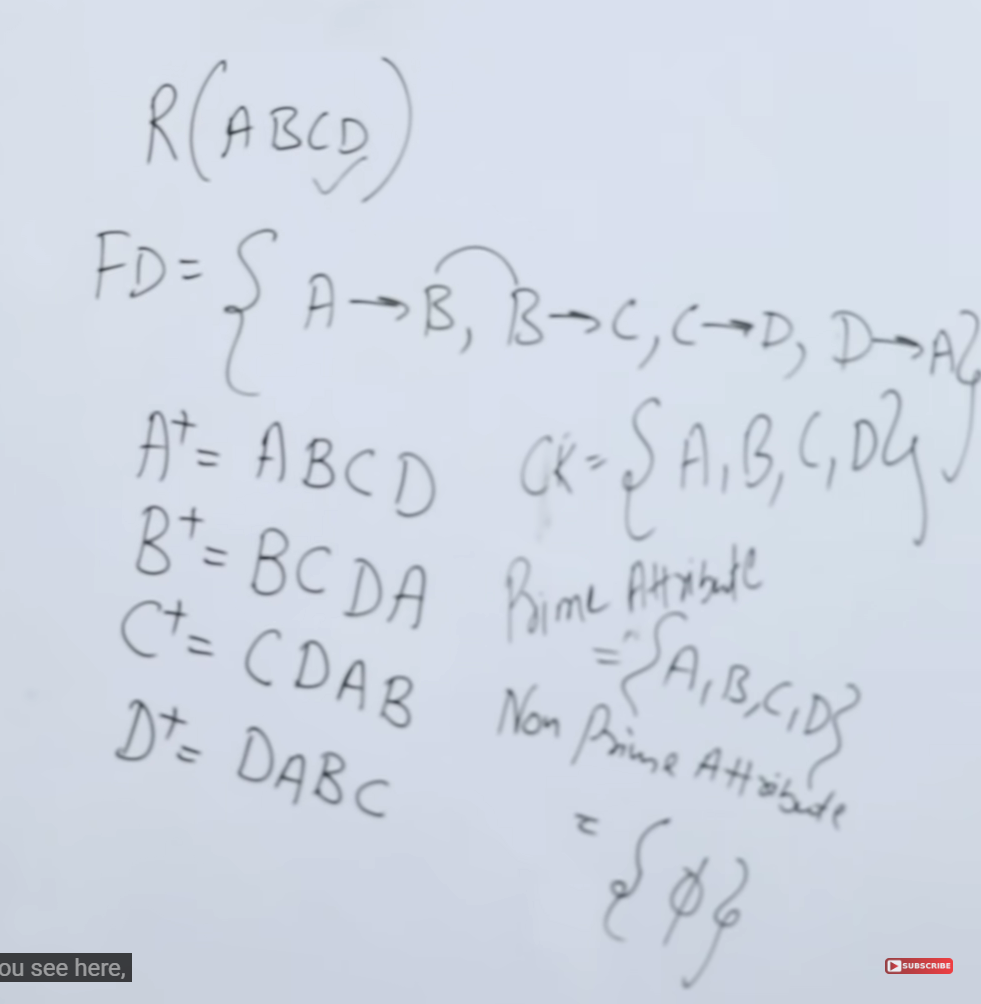 R(ABCD)
FD = { A → B, B → C, C → D, D → A}
A⁺ = ABCD
B⁺ = BCDA
C⁺ = CDAB
D⁺ = DABC
CK = {A, B, C, D}
Prime Attribute
= {A, B, C, D}
Non Prime Attribute
= {ϕ}
ou see here,
SUBSCRIBE